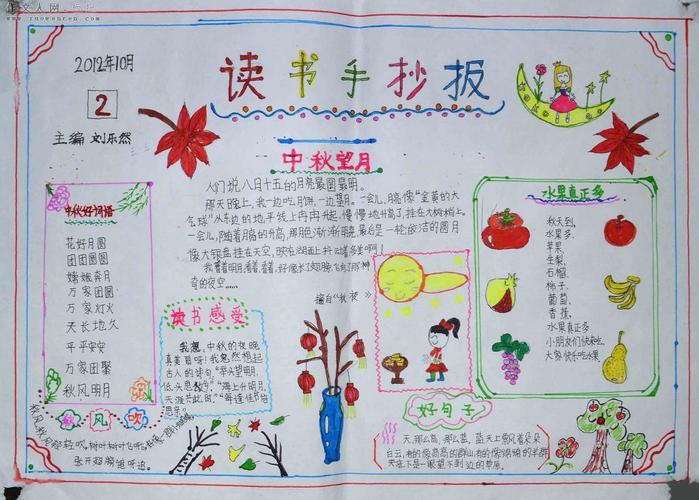 文人网
www.zuowenren.com
2012年10月
2
主编 刘乐然
读书手抄报
中秋望月
人们说八月十五的月亮最圆最明。
那天晚上,我一边吃月饼,一边望月。一会儿,月亮像“金黄的大
气球”从东边的地平线上冉冉升起,慢慢地升高了,挂在大树梢上。
一会儿,随着月亮的升高,那月色渐渐
最后是一轮皎洁的圆月
像大银盘挂在天空,映在湖面上抖动着多美啊!
我看着明月,看着,看着,好像长了翅膀,飞到了那神
奇的夜空……
摘自
中秋好词语
花好月圆
团团圆圆
嫦娥奔月
万家团圆
万家灯火
天长地久
平平安安
万家团聚
秋风明月
读书感受
我想,中秋的夜晚
真美丽呀!我忽然想起
古人的诗句,“举头望明月,
低头思故乡”“海上升明月,
天涯共此时。”“每逢佳节倍
思亲。
秋风吹
秋风秋风轻轻吹,树叶树叶飞呀飞,
张开翅膀追呀追。
水果真正多
秋天到,
水果多,
苹果,
生梨,
石榴,
柿子,
葡萄,
香蕉,
水果真正多
小朋友们快来吃
大家快乐吃水果
好句子
天,那么高,那么蓝,蓝天上飘风着朵朵
白云,有的像高高的群山,有的像绵绵的羊群
天底下是一眼望不到边的草原。